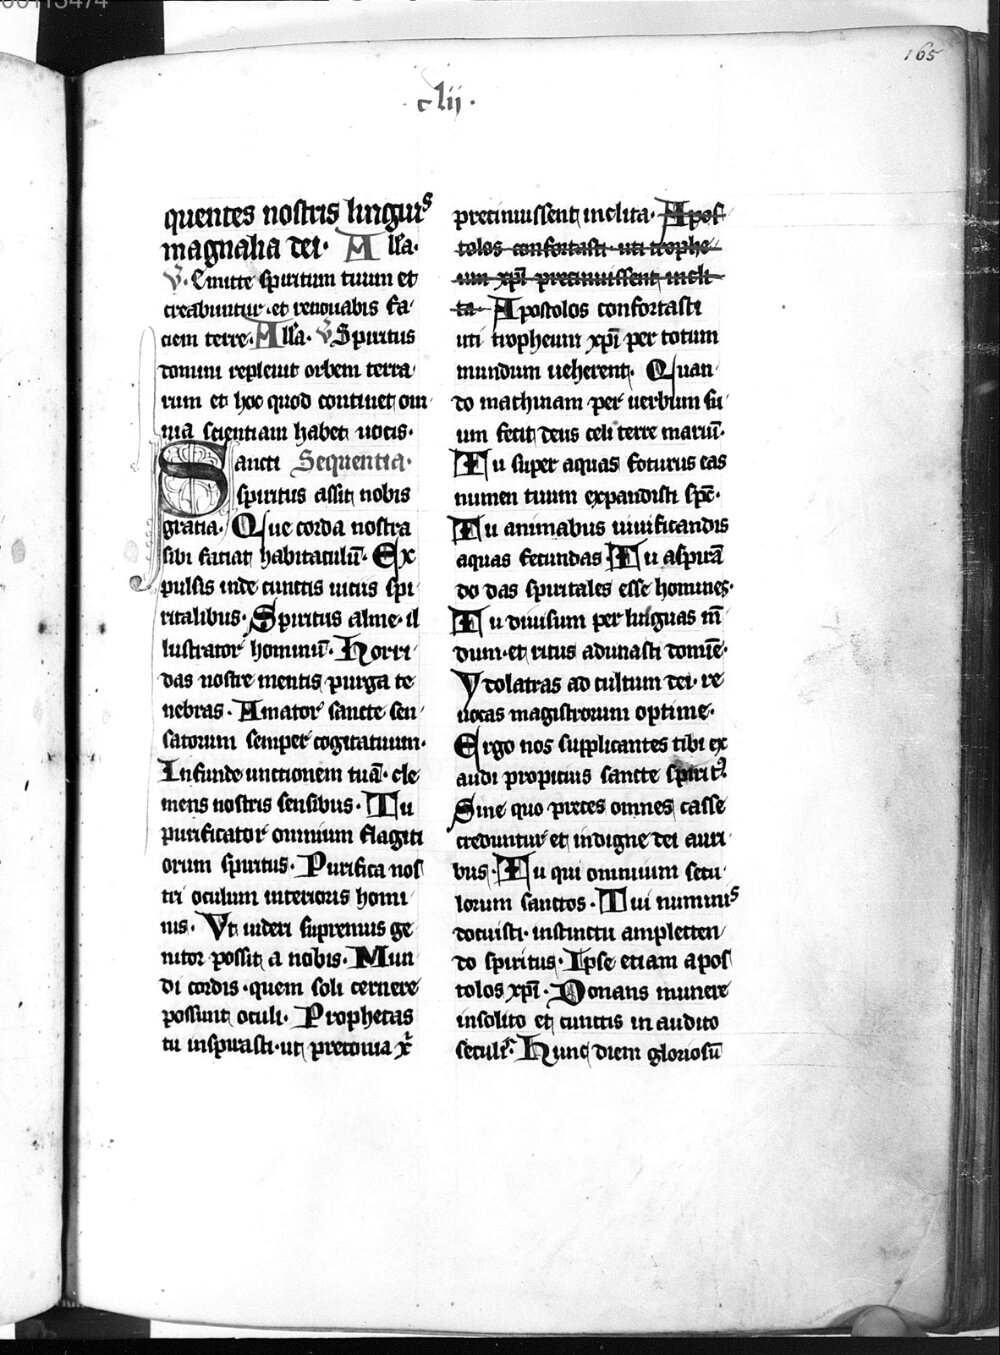 165
·clii·
quentes nostris linguis
magnalia dei· Alla·
V·Emitte spiritum tuum et
creabuntur·et renouabis fa
ciem terre·Alla·V Spiritus
domini repleuit orbem terra
rum et hoc quod continet om
nia scientiam habet uocis·
Sancti Sequentia·
spiritus assit nobis
gratia· Que corda nostra
sibi faciat habitaculū· Ex
pulsis inde cunctis uiciis spi
ritalibus· Spiritus alme·il
lustrator hominū· Horri
das nostre mentis purga te
nebras· Amator sancte sen
satorum semper cogitatuum·
Infunde unctionem tuā·cle
mens nostris sensibus· Tu
purificator omnium flagiti
orum spiritus· Purifica nos
tri oculum interioris homi
nis· Vt uideri supremus ge
nitor possit a nobis· Mun
di cordis·quem soli cernere
possunt oculi· Prophetas
tu inspirasti·ut preconia xp̄i
precinuissent inclita· Apos
tolos confortasti·uti trophe
um xp̄i precinuissent incli
ta· Apostolos confortasti
uti tropheum xp̄i per totum
mundum ueherent· Quan
do machinam per uerbum su
um fecit deus celi terre mariū·
Tu super aquas foturus eas
numen tuum expandisti spē·
Tu animabus uiuificandis
aquas fecundas Tu aspirā
do das spiritales esse homines·
Tu diuisum per linguas mū
dum·et ritus adunasti domīe·
Ydolatras ad cultum dei·re
uocas magistrorum optime·
Ergo nos supplicantes tibi ex
audi propicius sancte spirit9
Sine quo preces omnes casse
creduntur et indigne dei auri
bus· Tu qui omnium secu
lorum sanctos· Tui numinis
docuisti·instinctu amplecten
do spiritus· Ipse etiam apos
tolos xp̄i· Donans munere
insolito et cunctis in audito
seculis· Hunc diem gloriosū